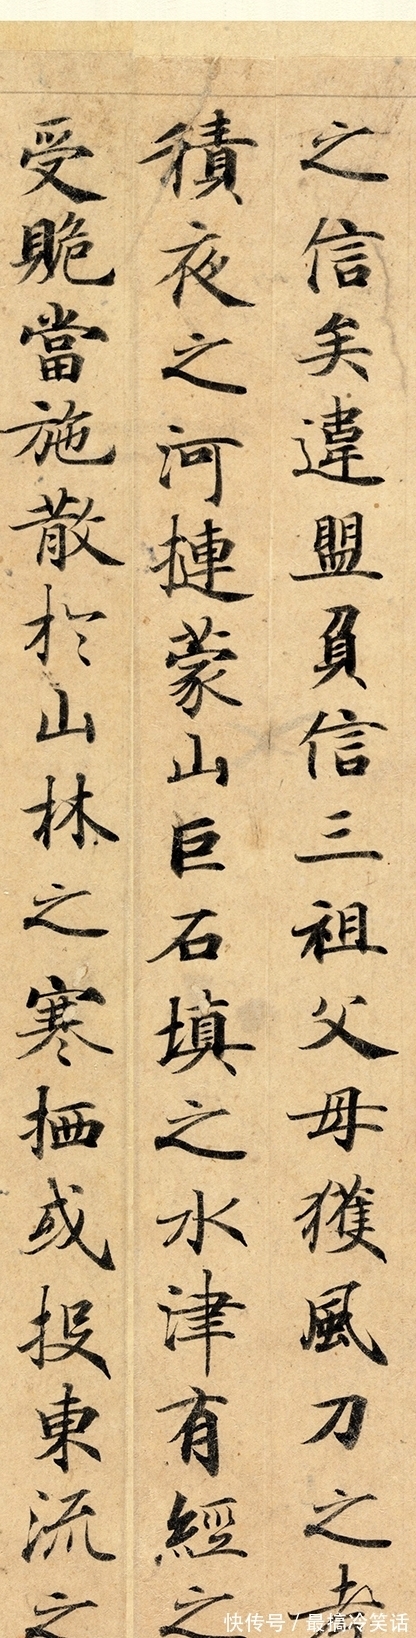 之信矣違盟負信三祖父母獲風刀之考
積夜之河摙蒙山巨石填之水津有經之
受賝當施散於山林之寒栖或投東流之
快传号 / 最搞冷笑话